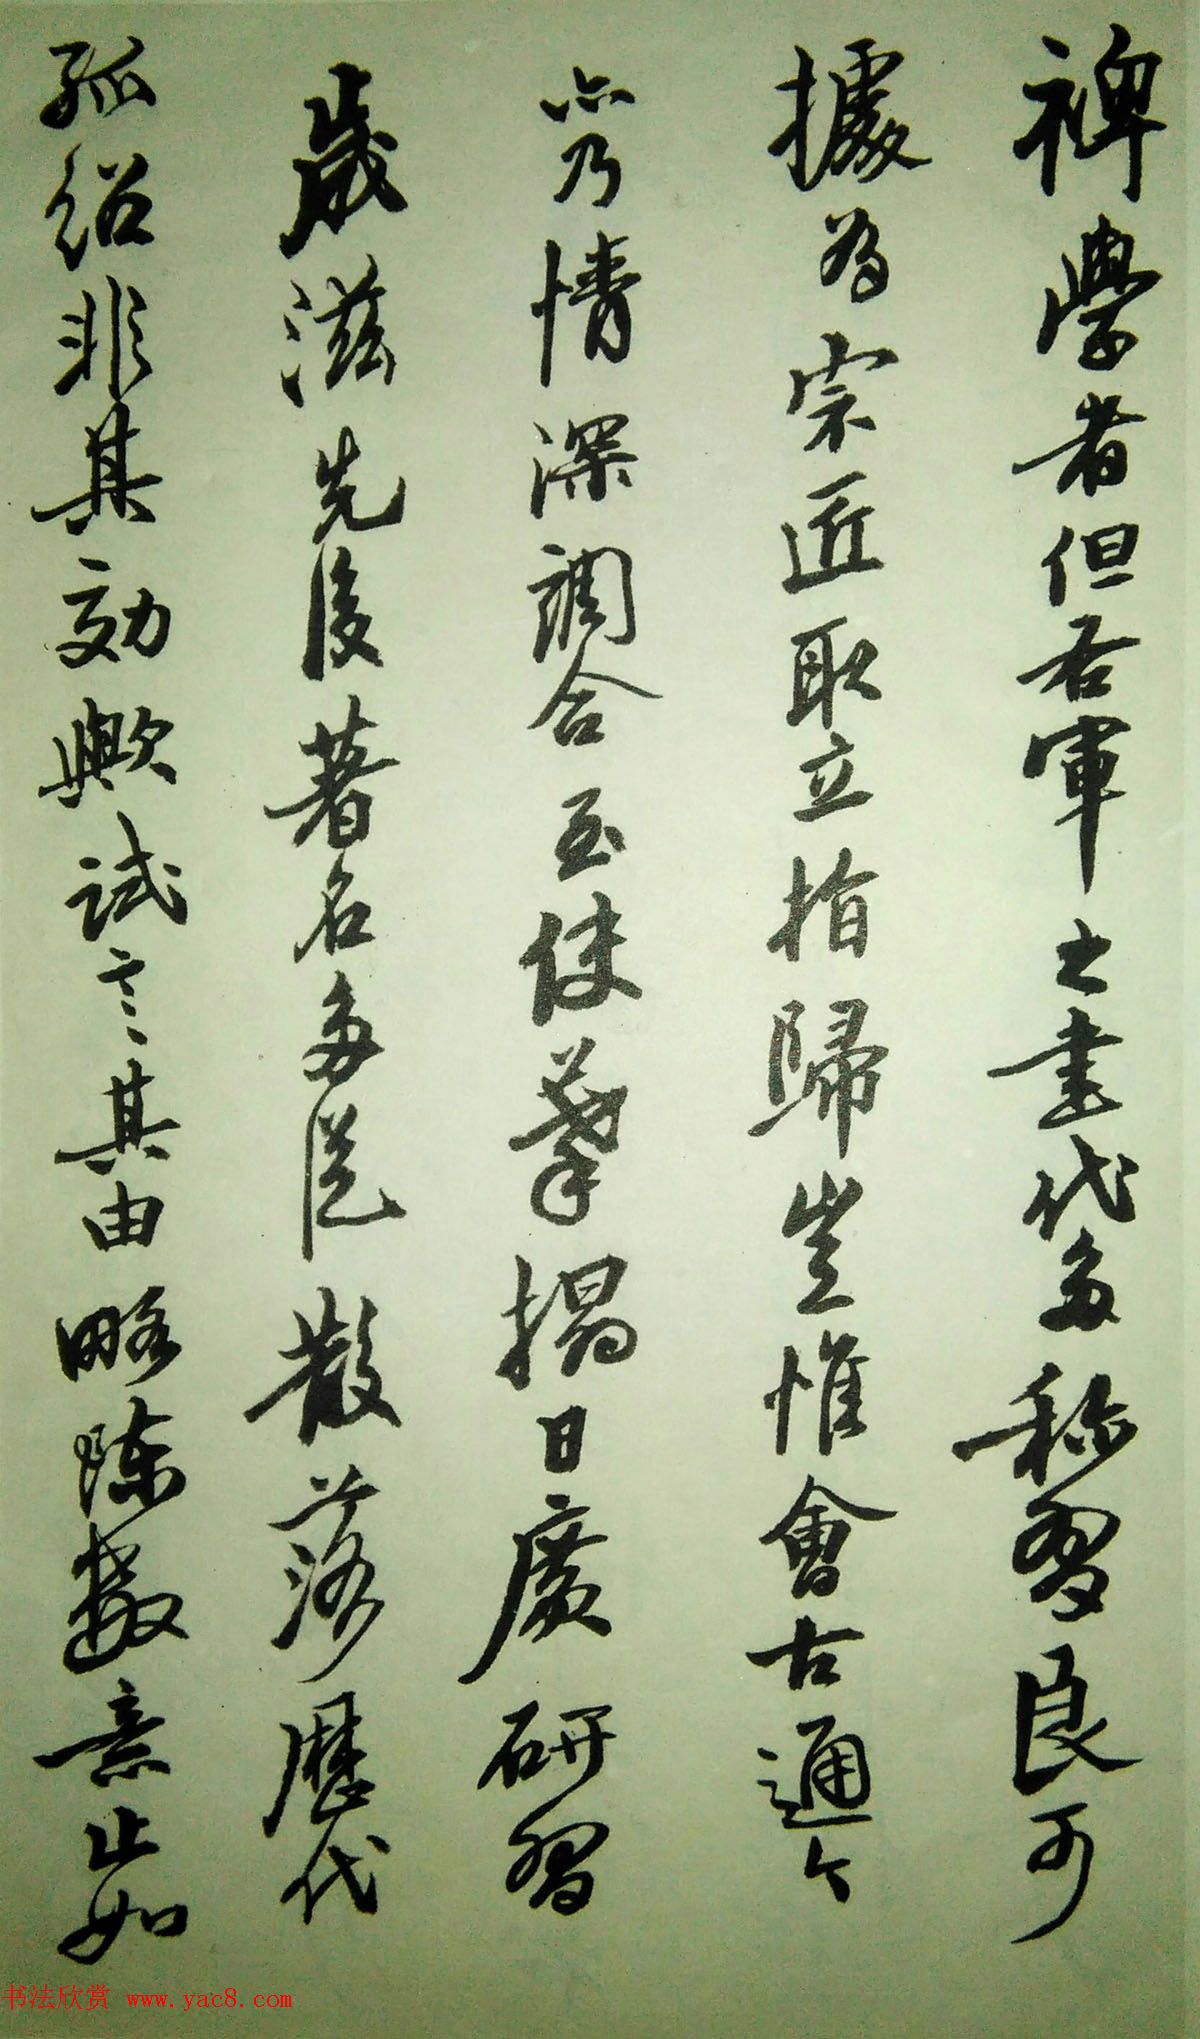 裨學者但右軍之書代多稱習良可
據為宗匠取立指歸豈惟會古通今
亦乃情深調合致使摹搨日廣研習
歲滋先後著名多從散落歷代
孤紹非其効歟試言其由略陳數意止如
书法欣赏 www.yac8.com